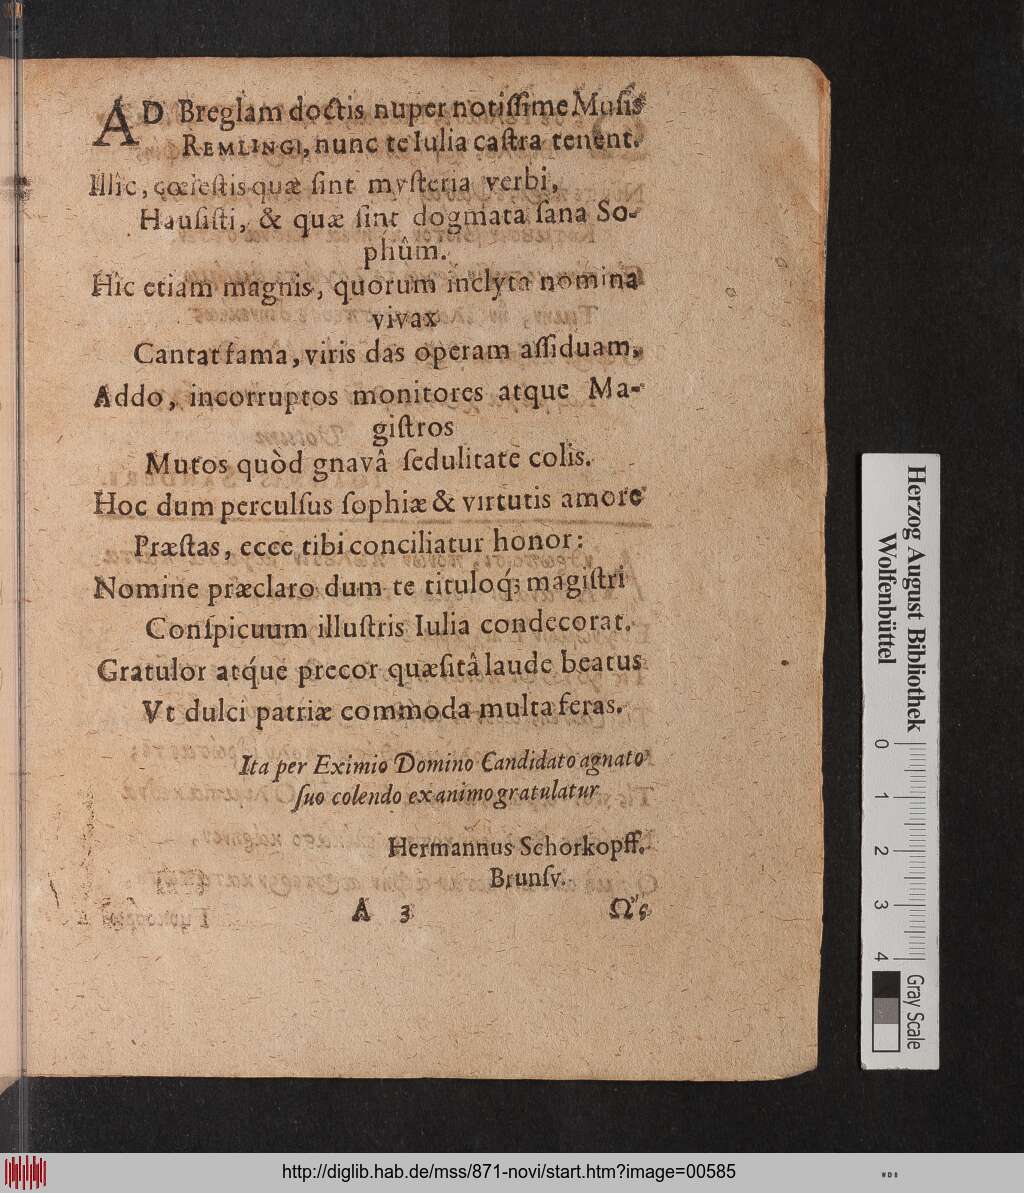 AD Breglam doctis nuper notissime Musis
REMLINGI, nunc te Iulia castra tenent.
Illîc, cœlestis quæ sint mysteria verbi,
Hausisti, & quæ sint dogmata sana So-
phûm.
Hîc etiam magnis, quorum inclyta nomina
vivax
Cantat fama, viris das operam assiduam.
Addo, incorruptos monitores atque Ma-
gistros
Mutos quòd gnavâ sedulitate colis.
Hoc dum perculsus sophiæ & virtutis amore
Præstas, ecce tibi conciliatur honor:
Nomine præclaro dum te tituloq́; magistri
Conspicuum illustris Iulia condecorat.
Gratulor atq́ue precor quæsitâ laude beatus
Vt dulci patriæ commoda multa feras.
Ita per Eximio Domino Candidato agnato
suo colendo ex animo gratulatur
Hermannus Schorkopff.
Brunsv.
A 3
Ὠς
Herzog August Bibliothek
Wolfenbüttel
0 1 2 3 4
Gray Scale
http://diglib.hab.de/mss/871-novi/start.htm?image=00585